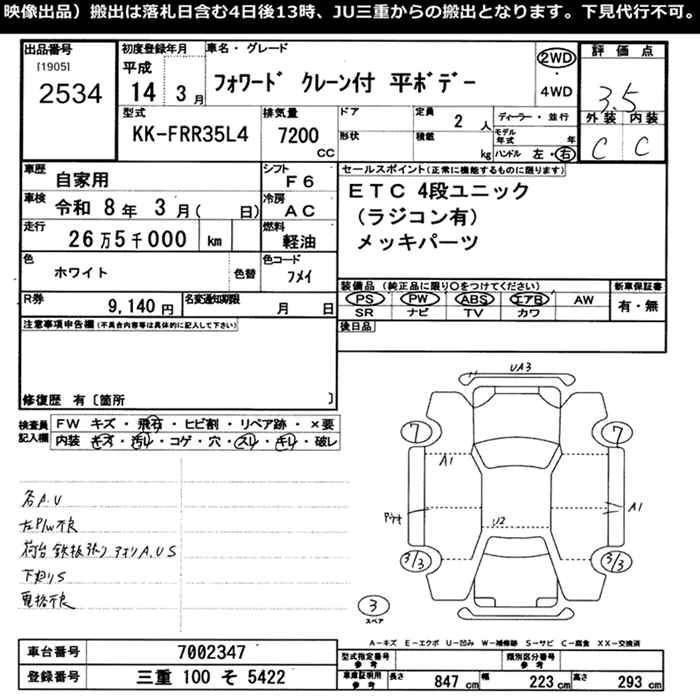 映像出品）搬出は落札日含む4日後13時、JU三重からの搬出となります。下見代行不可。
出品番号
[1905]
2534
初度登録年月
平成
14 3 月
車名・グレード
フォワード クレーン付 平ボデー
2WD
4WD
評価点
3.5
外装 内装
C C
型式
KK-FRR35L4
排気量
7200
CC
ドア
形状
定員
2 人
積載
kg
ディーラー・並行
モデル年式 年
ハンドル 左・右
車歴
自家用
シフト
F6
車検
令和 8年 3月( 日)
冷房
AC
走行
26万5千000 km
燃料
軽油
色
ホワイト
色替
色コード
フメイ
R券
9,140 円
名変通知期限
月 日
セールスポイント(正常に機能するものに限ります)
ETC 4段ユニック
(ラジコン有)
メッキパーツ
装備品 (純正品に限り〇をつけてください)
PS PW ABS エアB AW
SR ナビ TV カワ
新車保証書
有・無
後日品
注意事項申告欄(不具合内容等は具体的に記入して下さい)
修復歴 有〔箇所 〕
検査員記入欄
FW キズ・飛石・ヒビ割・リペア跡・×要
内装 キズ・汚レ・コゲ・穴・スレ・キレ・破レ
各A.U
左P/W不良
荷台 鉄板張り アオリA.U.S
下廻りS
電格不良
UA3
7
7
A1
A1
U2
3/3
3/3
3
スペア
A-キズ E-エクボ U-凹み W-補修跡 S-サビ C-腐食 XX-交換済
車台番号
7002347
登録番号
三重 100 そ 5422
型式指定番号
参考
類別区分番号
参考
車庫証明用
参考
長さ 847 cm 幅 223 cm 高さ 293 cm